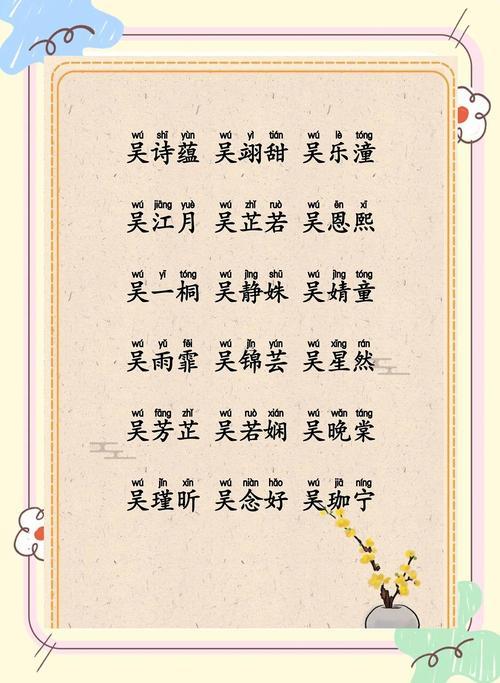 wú shī yùn wú yì tián wú lè tóng
吴诗蕴 吴翊甜 吴乐潼
wú jiāng yuè wú zhǐ ruò wú ēn xī
吴江月 吴芷若 吴恩熙
wú yī tóng wú jìng shū wú jìng tóng
吴一桐 吴静姝 吴婧童
wú yǔ fēi wú jǐn yún wú xīng rán
吴雨霏 吴锦芸 吴星然
wú fāng zhǐ wú ruò xián wú wǎn táng
吴芳芷 吴若娴 吴晚棠
wú jǐn xīn wú niàn hǎo wú jiā níng
吴瑾昕 吴念好 吴珈宁